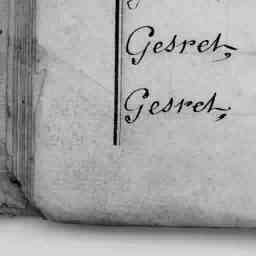 Gesret,
Gesret,